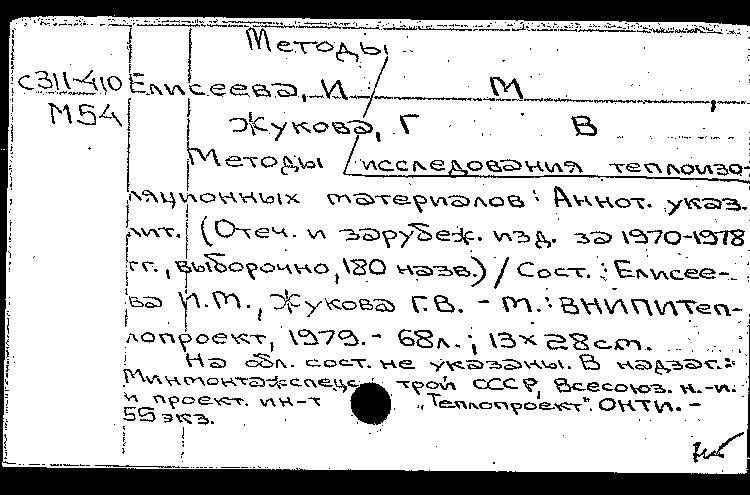 Методы
с311-410 Елисеева, И М
М54
Жукова, Г В
Методы исследования теплоизо-
ляционных материалов: Аннот. указ.
лит. (Отеч. и зарубеж. изд. за 1970-1978
гг., выборочно, 180 назв.) / Сост.: Елисее-
ва И.М., Жукова Г.В. - М.: ВНИПИТеп-
лопроект, 1979. - 68л.; 13×28cm.
На обл. сост. не указаны. В надзаг.:
Минмонтажспецс трой СССР, Всесоюз. н.-и.
и проект. ин-т "Теплопроект". ОНТИ. -
55 экз.